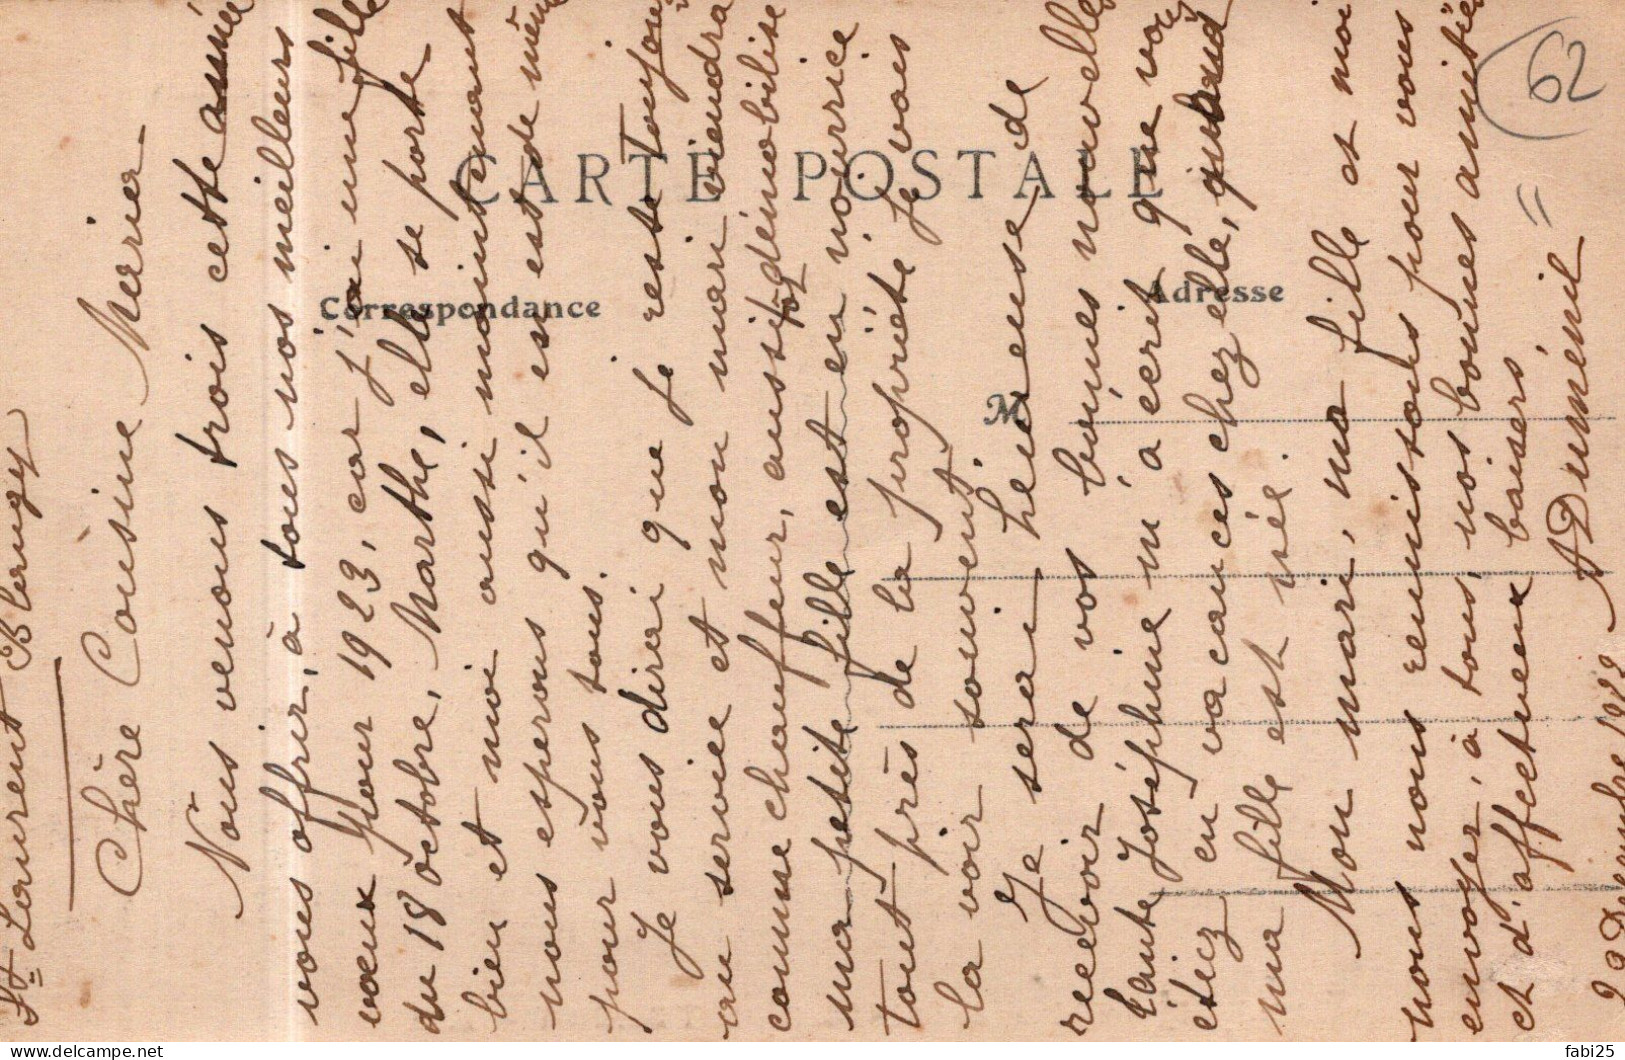 St Laurent Blangy
Chère Cousine Maria
Nous venons trois cette année
vous offrir, à tous nos meilleurs
vœux pour 1923, car j'ai une fille
du 18 octobre, Marthe, elle se porte
bien et moi aussi maintenant
nous esperons qu'il en est de même
pour vous tous.
Je vous dirai que je reste toujours
au service et mon mari viendra
comme chauffeur, aussitôt démobilisé
ma petite fille est en nourrice
tout près de la propriété je vais
la voir souvent.
Je serai heureuse de
recevoir de vos bonnes nouvelles
tante Joséphine m'a écrit que vous
étiez en vacances chez elle, quand
ma fille est née.
Mon mari, ma fille et moi
nous nous réunissons pour vous
envoyer, à tous, nos bonnes amitiés
et d'affectueux baisers.
A Duménil
Décembre 1922
CARTE POSTALE
Correspondance
Adresse
M
62
fabi25